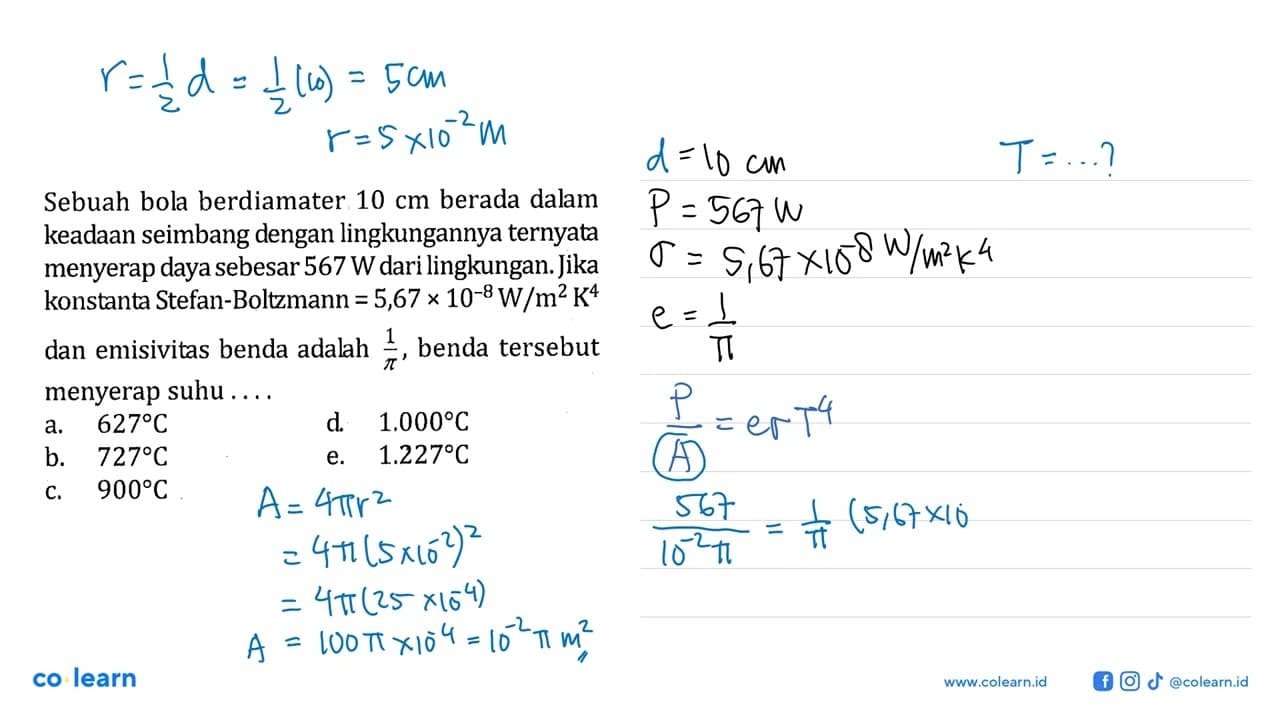 r = 1/2 d = 1/2 (10) = 5 cm
r = 5 × 10⁻² m
Sebuah bola berdiamater 10 cm berada dalam
keadaan seimbang dengan lingkungannya ternyata
menyerap daya sebesar 567 W dari lingkungan. Jika
konstanta Stefan-Boltzmann = 5,67 × 10⁻⁸ W/m² K⁴
dan emisivitas benda adalah 1/π, benda tersebut
menyerap suhu ....
a. 627°C d. 1.000°C
b. 727°C e. 1.227°C
c. 900°C
A = 4πr²
= 4π(5×10⁻²)²
= 4π(25 ×10⁻⁴)
A = 100π ×10⁻⁴ = 10⁻² π m²
d = 10 cm T = ...?
P = 567 W
σ = 5,67 ×10⁻⁸ W/m²K⁴
e = 1/π
P/A = eσT⁴
567/10⁻²π = 1/π (5,67 ×10
co learn
www.colearn.id @colearn.id